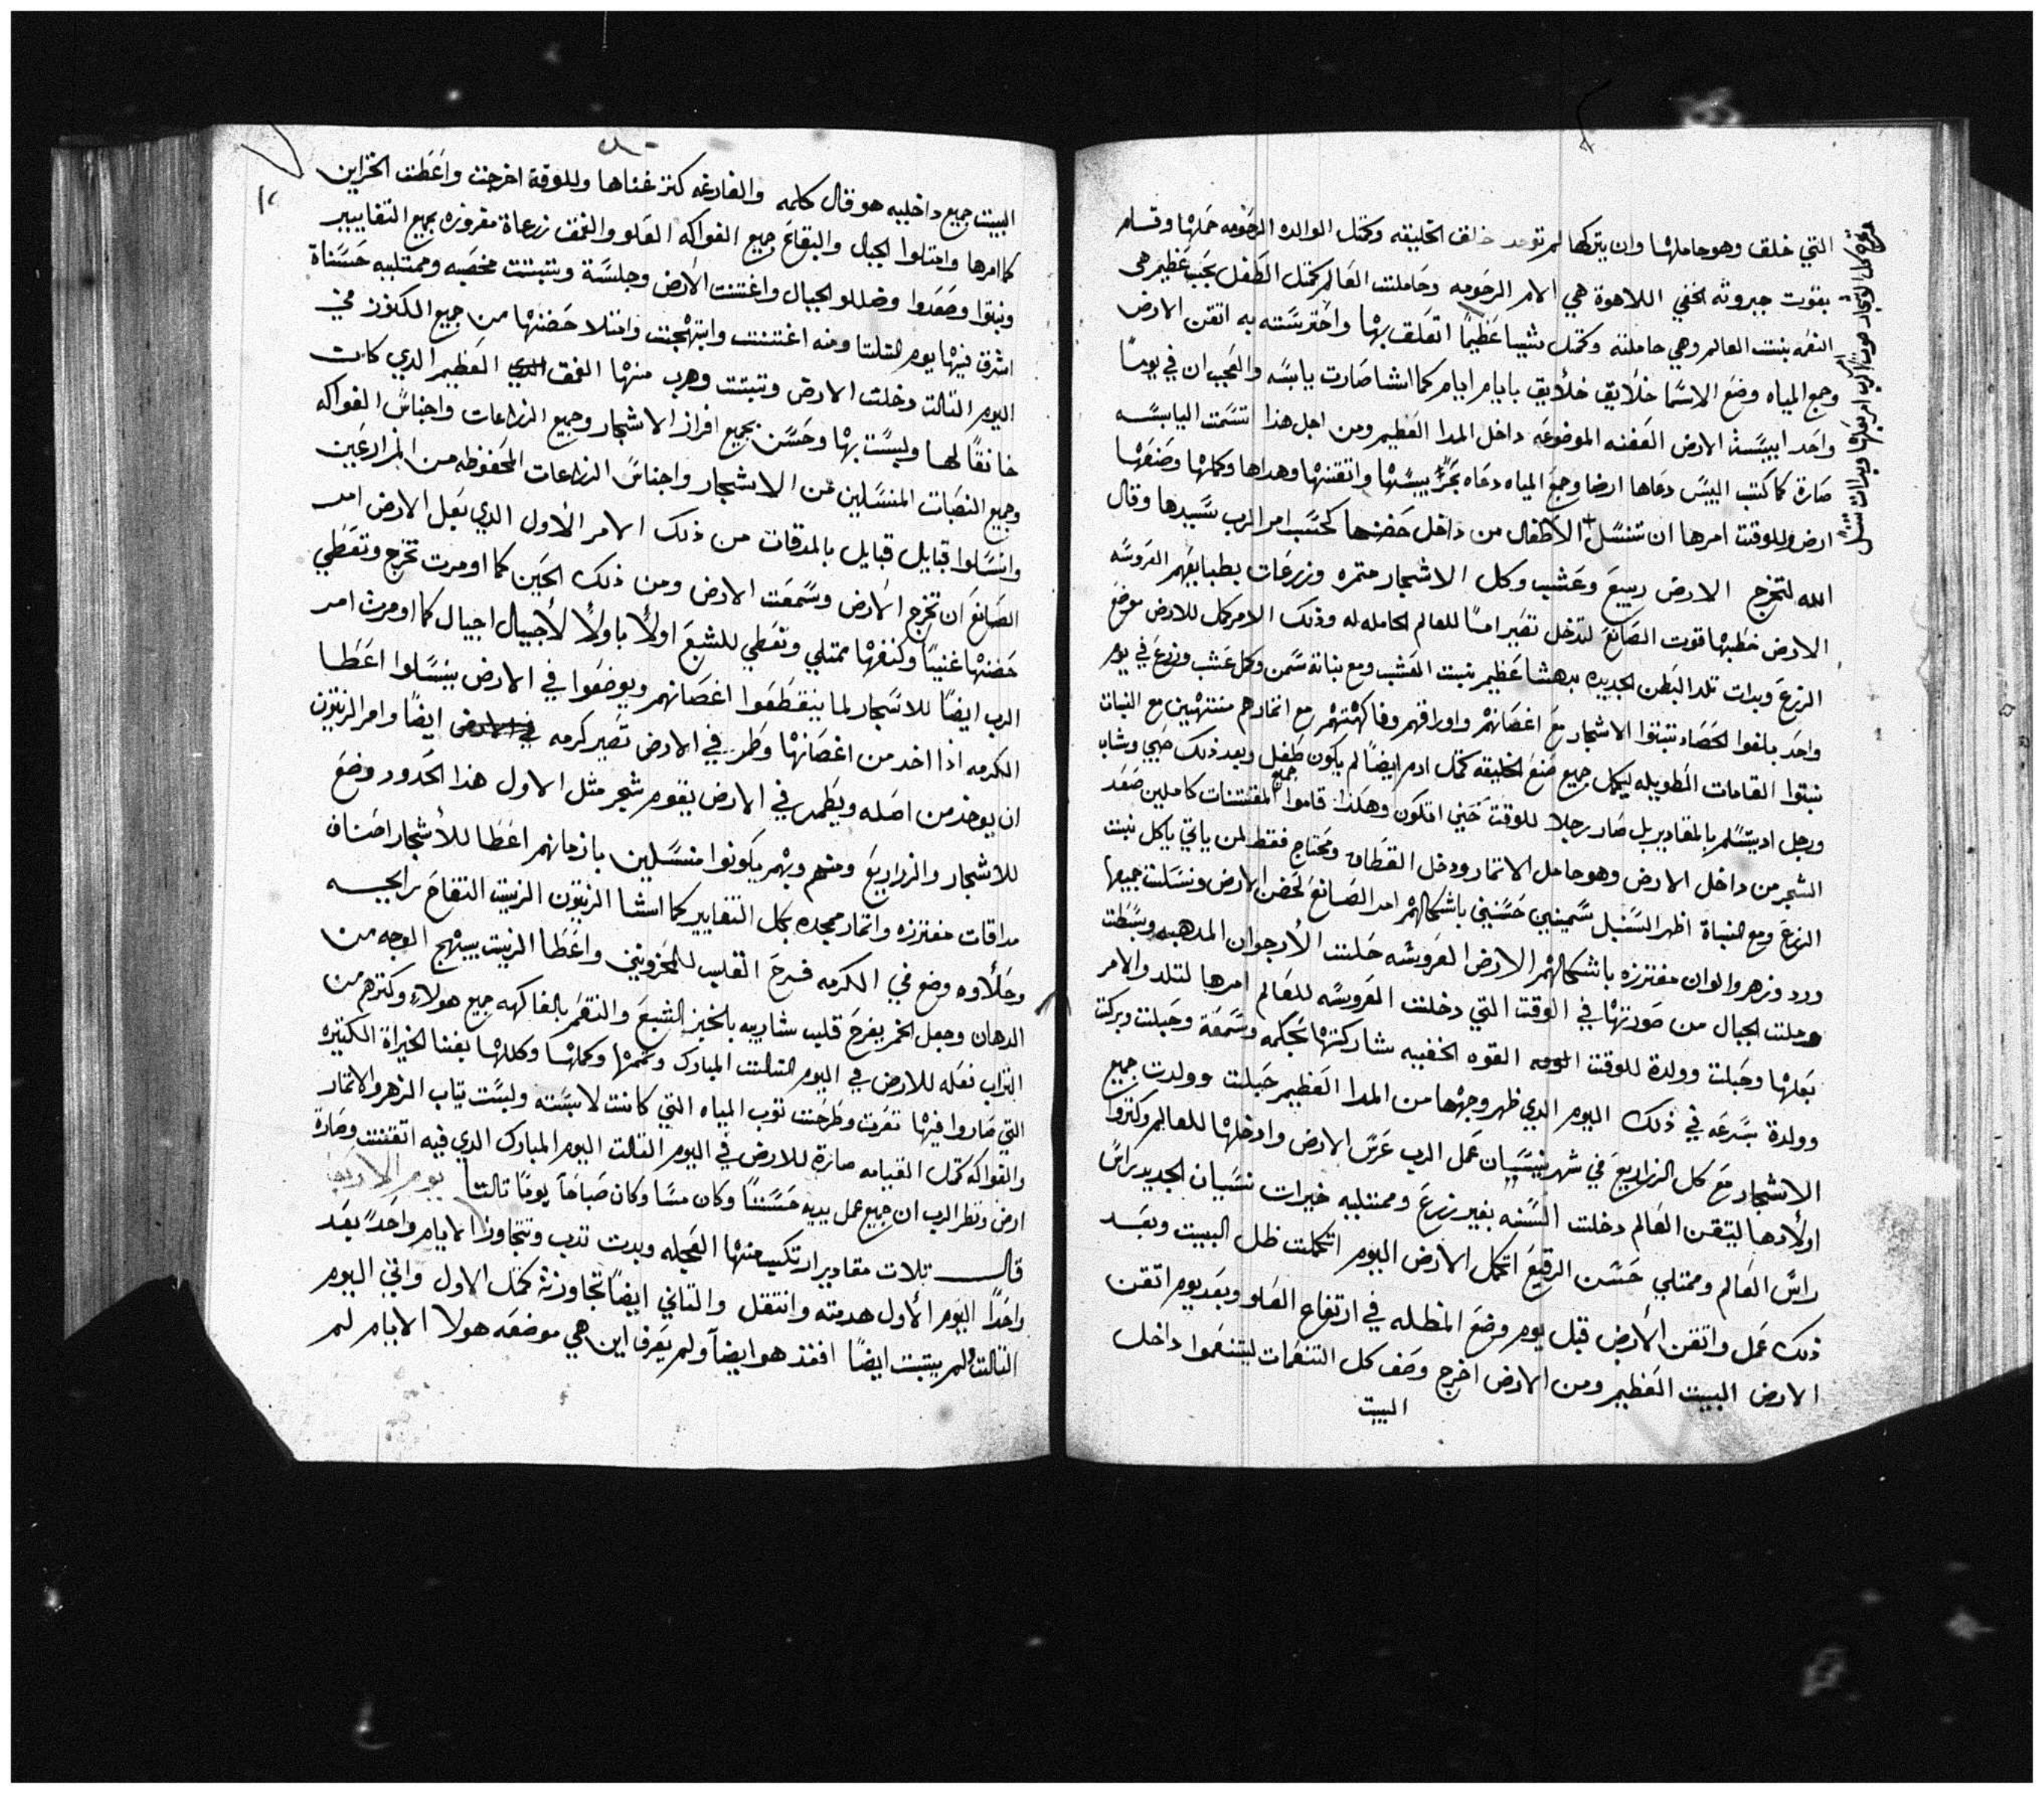 التي خلق وهو حاملها وان يتركها لم توجد خلف الخليقه وكمتل الوالده الرحومه حملها وقسام
بقوت جبروته الخفي اللاهوة هي الامر الرحومه وحاملت العالم كمتل الطفل بحب عظيم هي
النقمه بنت العالم وهي حاملته وكمتل شيبا عظيمًا اتعلق بها واحترسته به اتقن الارض
وجمع المياه وضع الاسما خلايق خلايق بايام ايام كما انشا صارت يابسه والعجب ان في يومًا
واحد ايبست الارض العفنه الموضوعه داخل المدا العظيم ومن اجل هذا تسمت اليابسه
صارة كما كتب اليبس دعاها ارضا وجمع المياه دعاه بحرًا يبسها واتقنها وهداها وكملها وصنعها
ارض وللوقت امرها ان تنسل الاطفال من داخل حضنها كحسب امر الرب سيدها وقال
الله لتخرج الارض ربيع وعشب وكل الاشجار متمره وزرعات بطبايعهم العروسه
الارض خطبها قوت الصانع لتدخل تصير امًا للعالم الحامله له وذلك الامر كمل للارض موضع
الزرع وبدات تلد البطن الجديده بدهشا عظيم نبتت العشب ومع نباته سمن وكمل عشب وزرع في يوم
واحد بلغوا الحصاد تنبتوا الاشجار مع اغصانهم واوراقهم وفاكهتهم مع اتمارهم منتهيين مع النبات
نبتوا القامات الطويله ليكمل جميع صنع الخليقه كمتل ادم ايضًا لم يكون طفل وبعد ذلك صبي وشاب
ورجل اد يتسلم بالمقادير بل صار رجلا للوقت حين اتكون وهكذا قاموا جميع المقتنات كاملين صعد
الشجر من داخل الارض وهو حامل الاتمار ودخل القطاف ومحتاج فقط لمن ياتي ياكل نبت
الزرع ومع النباة اظهر السنبل سمينين حسنين باشكالهم امر الصانع لحضن الارض ونسلت جميعها
ورد وزهر والوان مفترزه باشكالهم الارض العروشه حلت الارجوان المدهبه وبسطت
وحلت الجبال من صورتها في الوقت التي دخلت العروسه للعالم امرها لتلد والامر
بعلها وحبلت وولدة للوقت القوه الخفييه شاركتها بحكمه وسمعة وحبلت وبركت
وولدة بسرعه في ذلك اليوم الدي ظهر وجهها من المدا العظيم حبلت وولدت جميع
الاشجار مع كل الزراريع في شهر نيسان عمل الرب عرس الارض وادخلها للعالم وكتروا
اولادها ليتقن العالم دخلت السنه بغير زرع وممتليه خيرات نسيان الجديد براس
راس العالم وممتلي حسن الرقيع اتكمل الارض اليوم اتكملت ظل البيت وبعد
ذلك عمل واتقن الارض قبل يوم وضع المظله في ارتفاع العلو وبعد يوم اتقن
الارض البيت العظيم ومن الارض اخرج وصف كل التنعمات ليتنعموا داخل
البيت
البيت جميع داخليه هو قال كلمه والفارغه كنز غناها وللوقة اخرجت واعطت الخزاين
كما امرها وامتلوا الجبل والبقاع جميع الفواكه العلو والغمق زرعاة مفروزه بجميع التغايير
ونبتوا وصعدوا وضللو الجبال واغتنت الارض وجلسة وتنبتت مخصبه وممتليه حسناة
اشرق فيها يوم التلتا ومنه اغتنت وابتهجت وامتلا حضنها من جميع الكنوز في
اليوم التالت دخلت الارض وتنبتت وهرب منها الغمق العظيم الدي كان
خانقًا لها ولبست بها وحسن بجميع افراز الاشجار وجميع الزراعات واجناس الفواكه
وجميع النصبات المنسلين من الاشجار واجناس الزراعات المحفوظه من المزارعين
وانسلوا قبايل قبايل بالمدقات من ذلك الامر الاول الدي بعل الارض امر
الصانع ان تخرج الارض وسمعت الارض ومن ذلك الحين كما اومرت تخرج وتعطي
حضنها غنيًا وكنفها ممتلي وتعطي للشبع اولاً باولاً لأجيال اجيال كما اومرت امر
الرب ايضًا للاشجار لما ينقطعوا اغصانهم ويوضعوا في الارض ينسلوا اعطا
الكرمه اذا اخد من اغصانها وطمر في الارض تصير كرمه في الارض ايضًا وامر الزيتون
ان يوخذ من اصله ويطمر في الارض يقوم شجر مثل الاول هذا الحدود وضع
للاشجار والزراريع ومنهم وبهم يكونوا منسلين بازمانهم اعطا للاشجار اصناف
مداقات مفترزه واتمار ممجده بكل التغايير كما انشا الزيتون الزيت التفاح رايحه
وحلاوه وضع في الكرمه فرح القلب للمحزونين واعطا الزيت يبتهج الوجه من
الدهان وجعل الخمر يفرح قلب شاربيه بالخبز الشبع والتنعم بالفاكهه جميع هولاء وكترهم من
التراب نعله للارض في اليوم التالت المبارك وتممها وكملها وكللها بغنا الخيراة الكتيره
التي صاروا فيها تعرت وطرحت توب المياه التي كانت لابسته ولبست تياب الزهر والاتمار
والفواكه كمتل القيامه صارة للارض في اليوم التالت اليوم المبارك الدي فيه اتقنت وصارة
ارض ونظر الرب ان جميع عمل يديه حسنًا وكان مسا وكان صباحا يومًا تالتا يوم الاربعا
قال تلات مقادير ارتكبت منها العجله وبدت تدب وتتجاوز الايام واحدً بعد
واحدًا اليوم الأول هديته وانتقل والتاني ايضًا تجاوزة كمتل الاول واتي اليوم
التالت ولم يتبت ايضًا افند هو ايضآ ولم يعرف اين هي موضعه هولا الايام لم